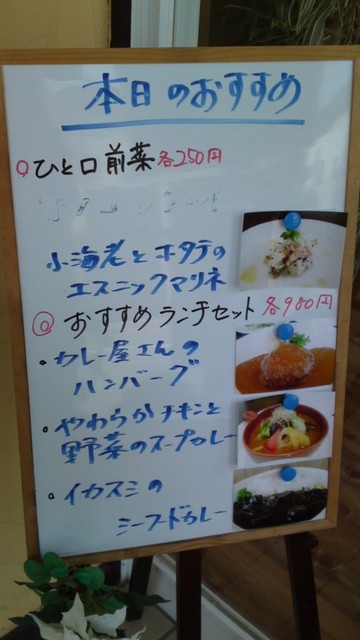 本日のおすすめ
○ひと口前菜 各250円
小海老とホタテの
エスニックマリネ
◎おすすめランチセット 各980円
・カレー屋さんの
ハンバーグ
・やわらかチキンと
野菜のスープカレー
・イカスミの
シーフードカレー